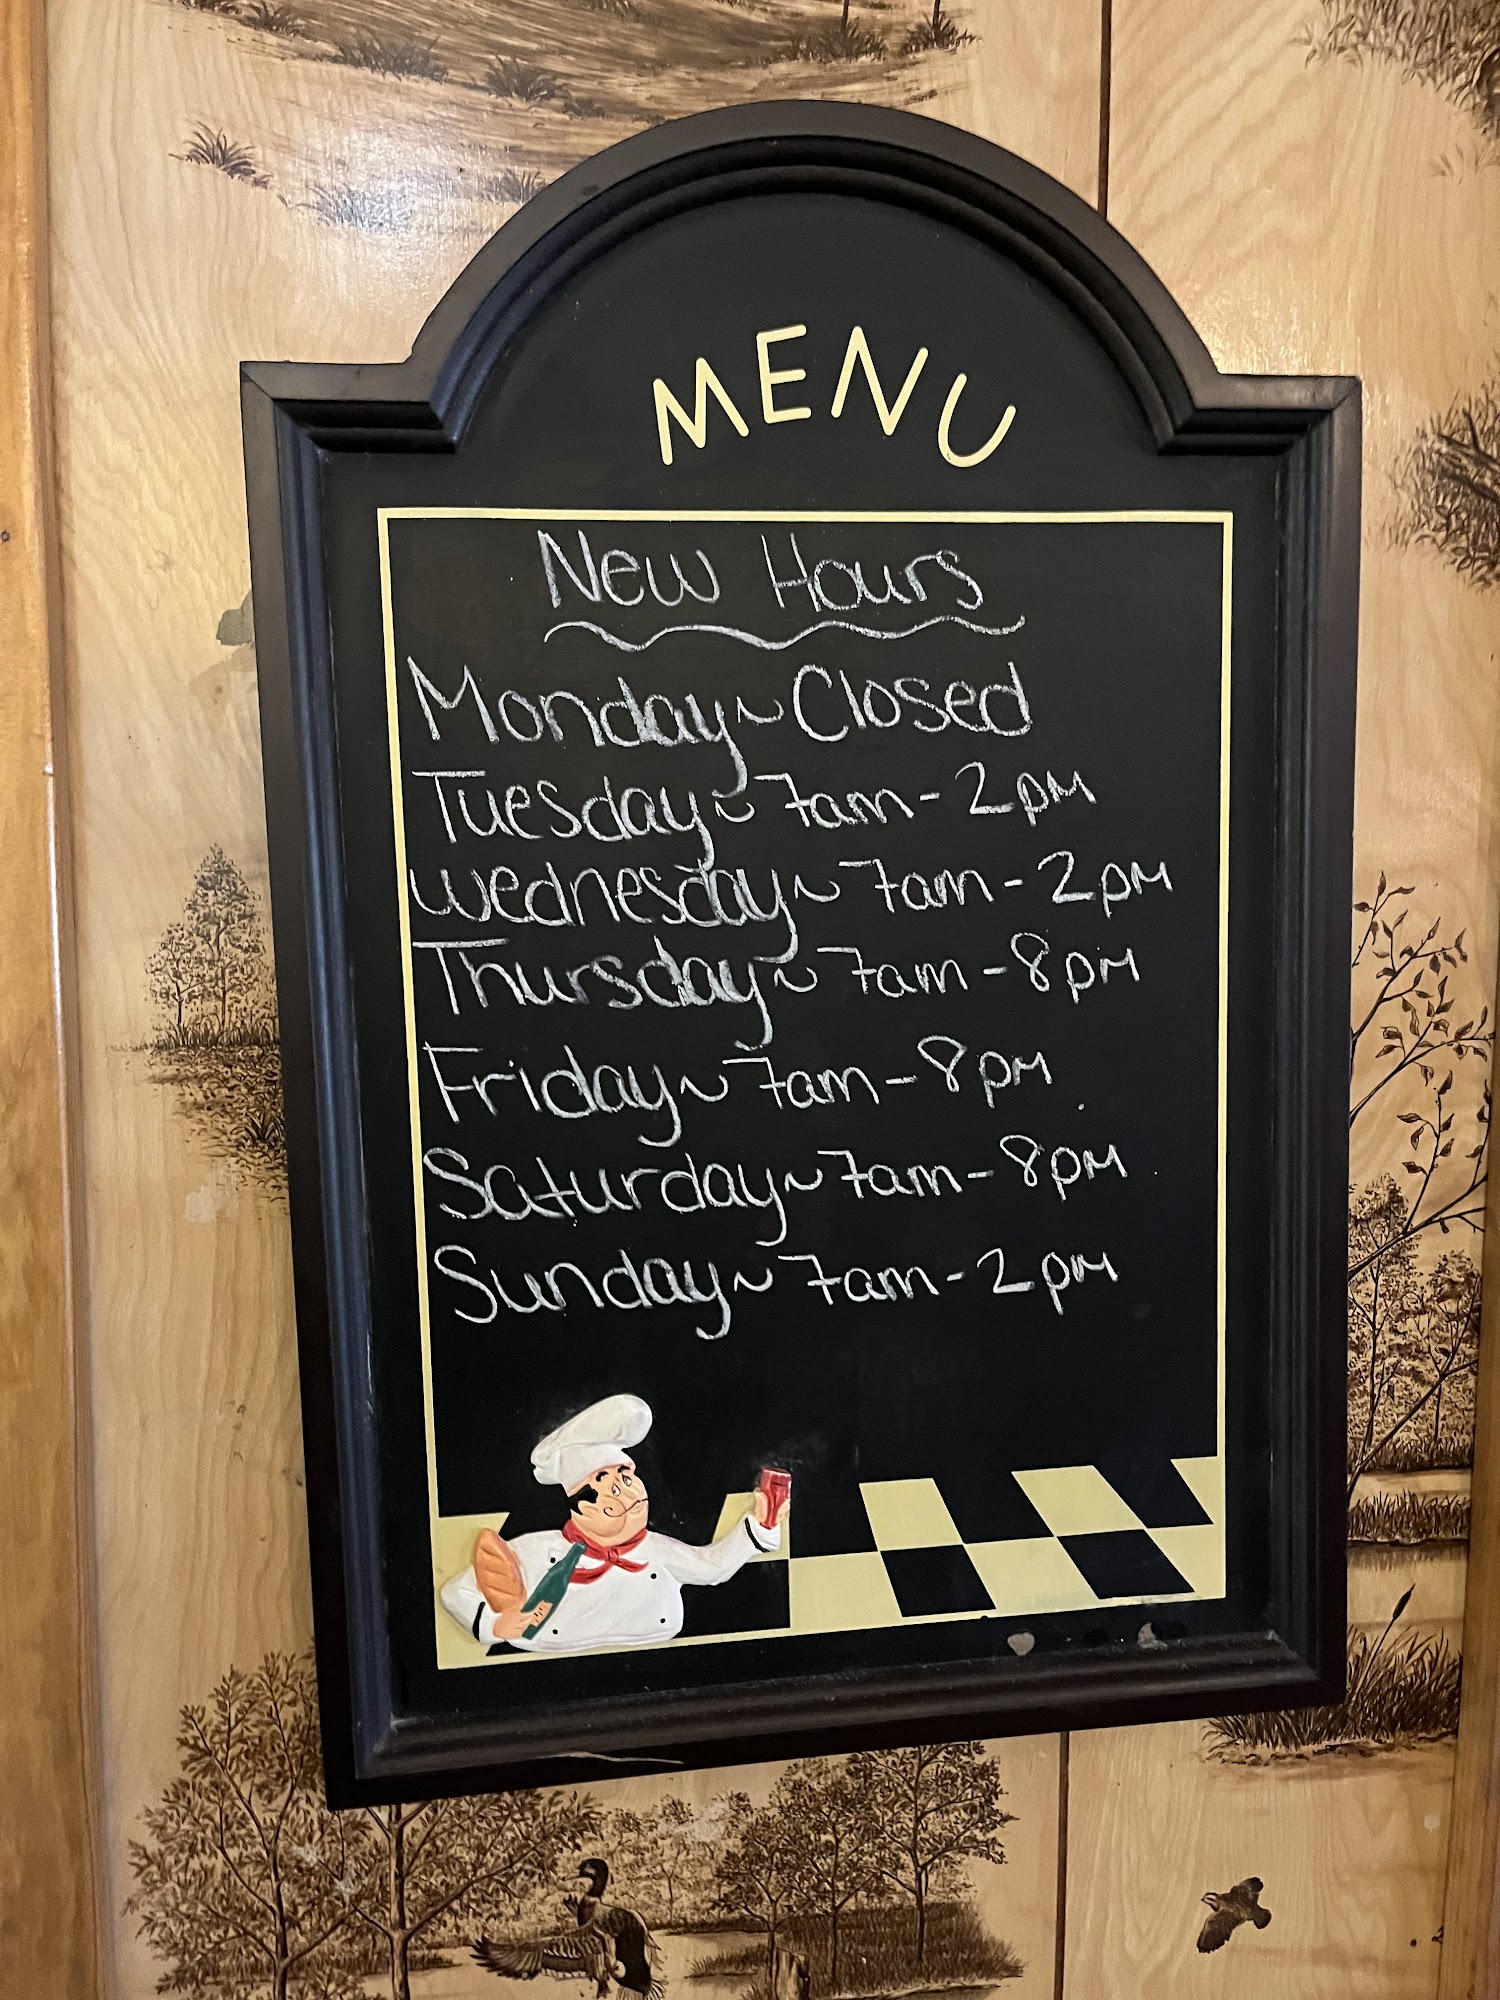 MENU
New Hours
Monday~Closed
Tuesday~7am-2pm
Wednesday~7am-2pm
Thursday~7am-8pm
Friday~7am-8pm
Saturday~7am-8pm
Sunday~7am-2pm